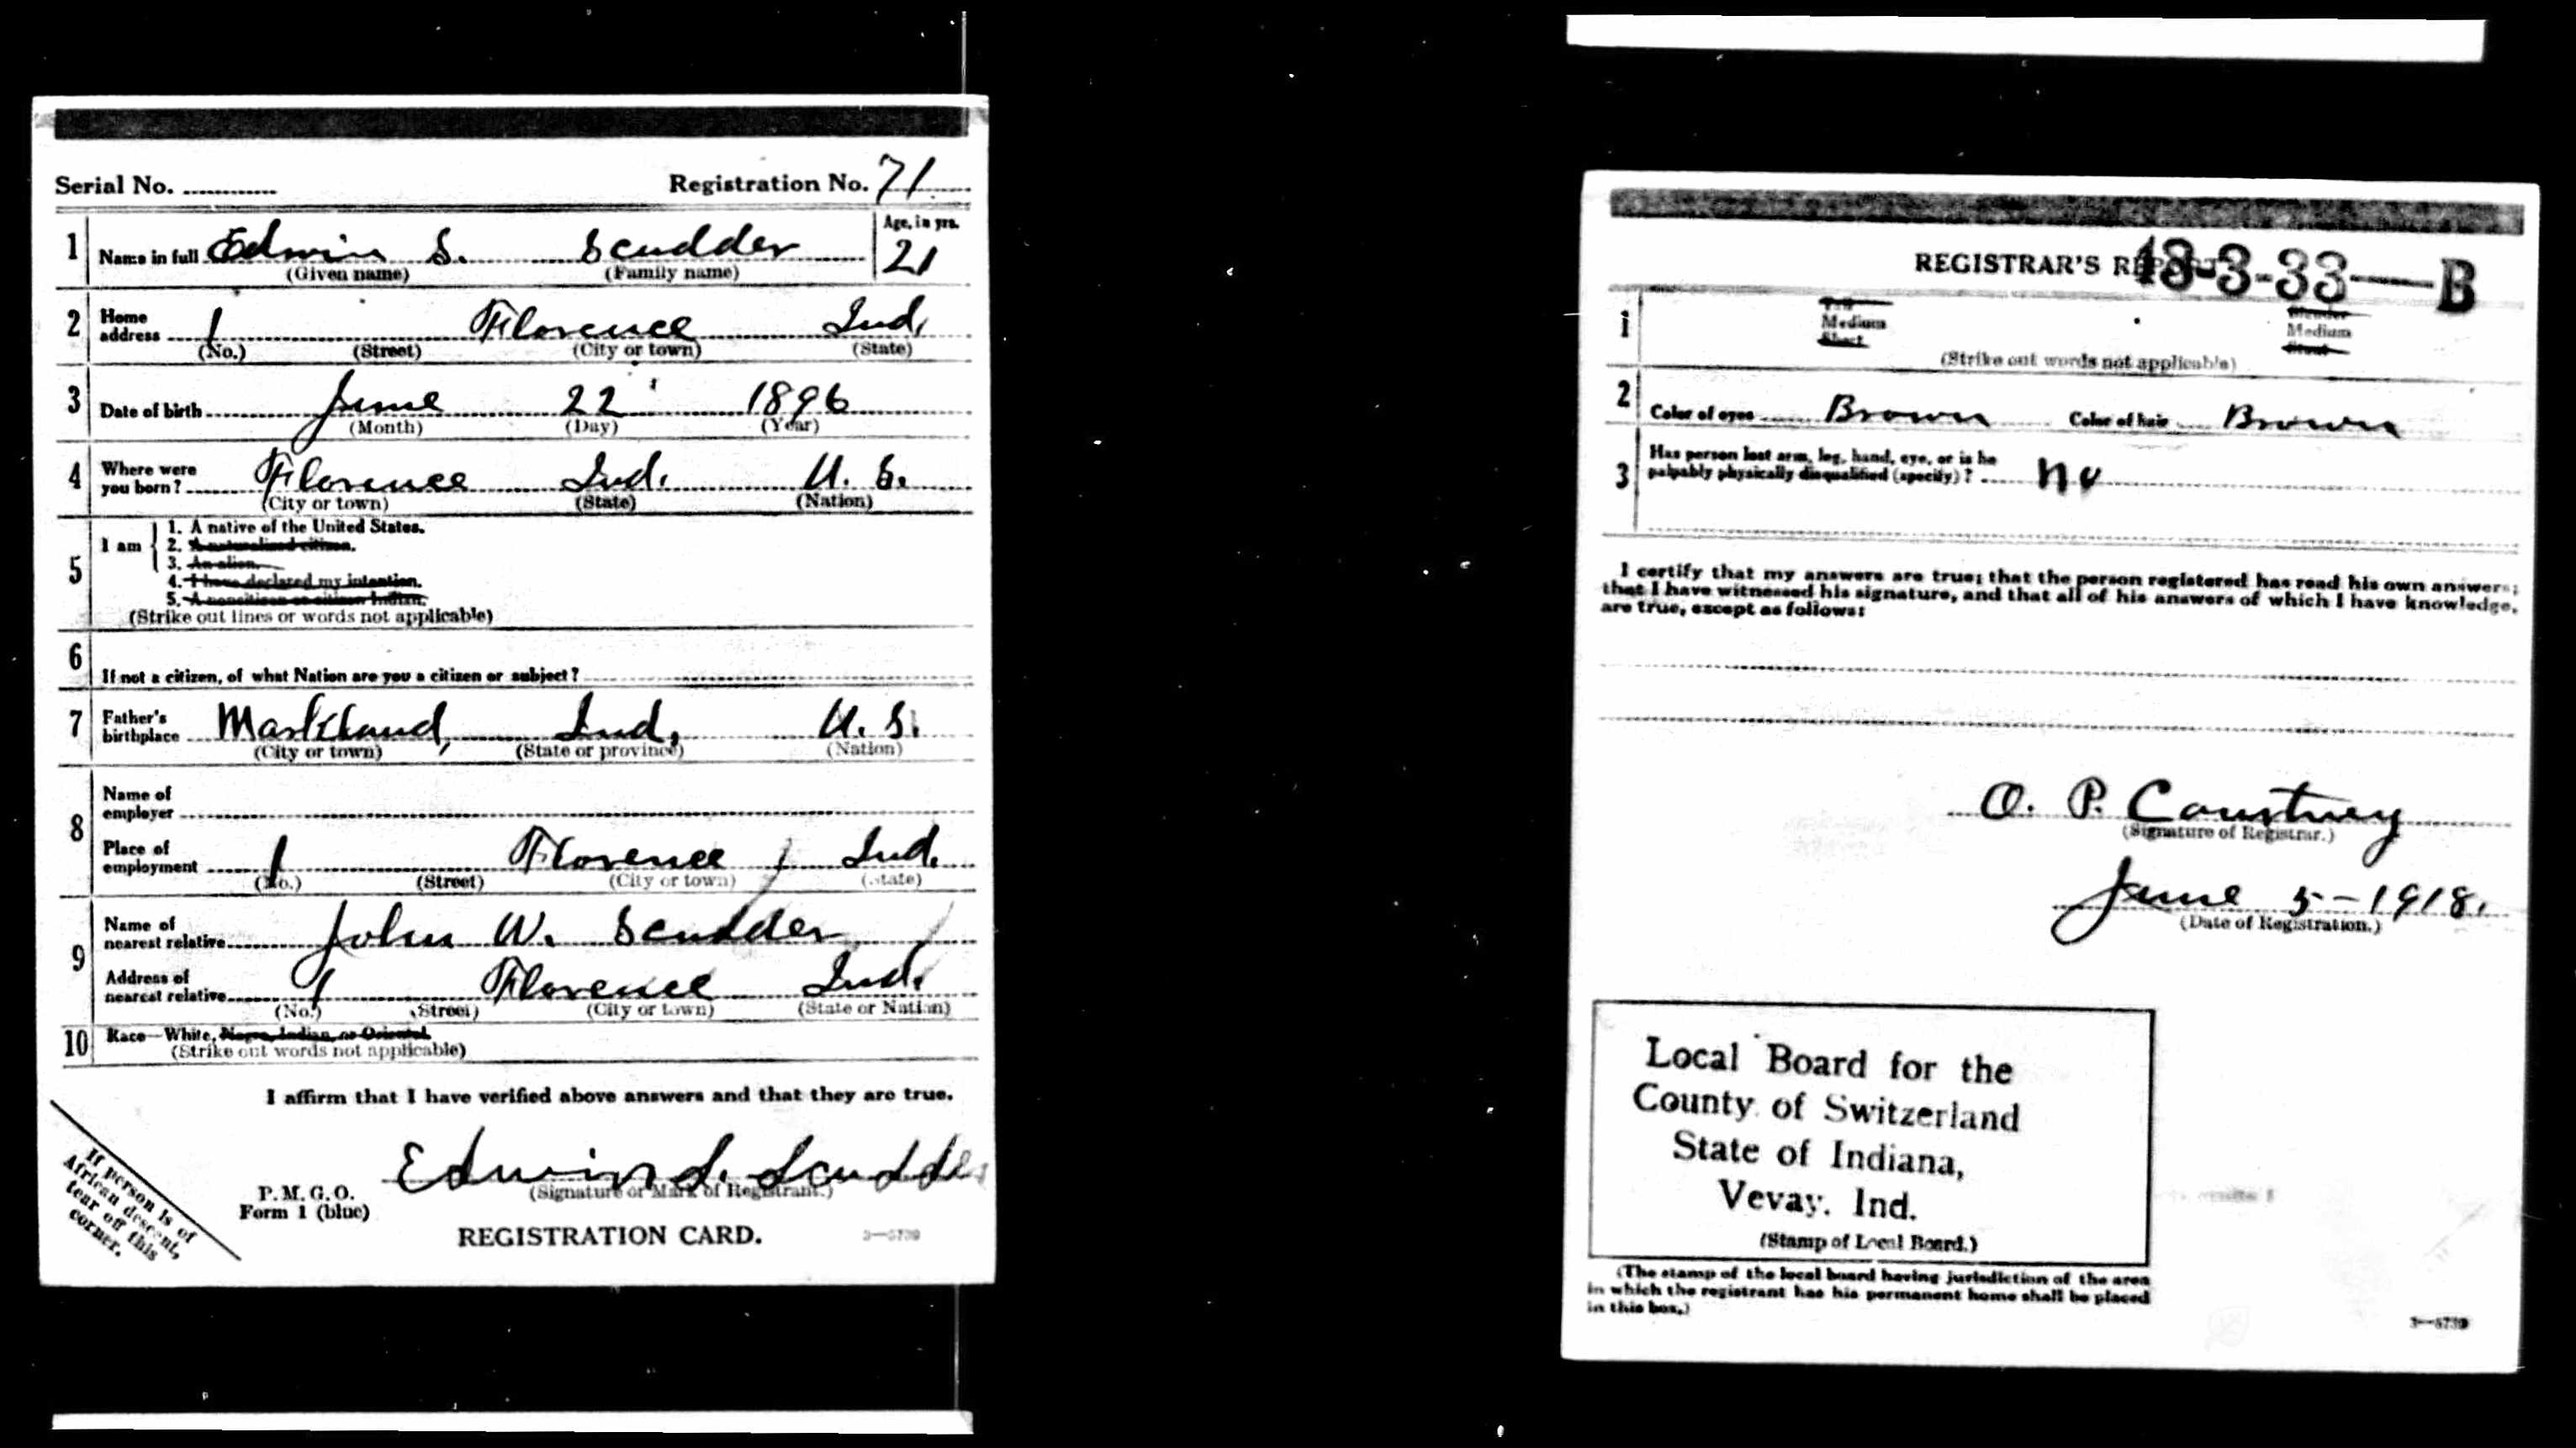 Serial No. Registration No. 71
1 Name in full Edwin S. Scudder Age, in yrs. 21
(Given name) (Family name)
2 Home address 1 Florence Ind.
(No.) (Street) (City or town) (State)
3 Date of birth June 22 1896
(Month) (Day) (Year)
4 Where were you born? Florence Ind. U. S.
(City or town) (State) (Nation)
5 I am
1. A native of the United States.
2. A naturalized citizen.
3. An alien.
4. I have declared my intention.
5. A noncitizen or citizen Indian.
(Strike out lines or words not applicable)
6 If not a citizen, of what Nation are you a citizen or subject?
7 Father's birthplace Markland, Ind, U. S.
(City or town) (State or province) (Nation)
8 Name of employer
Place of employment 1 Florence, Ind.
(No.) (Street) (City or town) (State)
9 Name of nearest relative John W. Scudder
Address of nearest relative 1 Florence Ind.
(No.) (Street) (City or town) (State or Nation)
10 Race—White, Negro, Indian, or Oriental.
(Strike out words not applicable)
I affirm that I have verified above answers and that they are true.
Edwin S. Scudder
(Signature or Mark of Registrant.)
P. M. G. O.
Form 1 (blue)
REGISTRATION CARD.
3—5739
If person is of
African descent,
tear off this
corner.
REGISTRAR'S REPORT 13-3-33—B
1 Tall Slender
Medium Medium
Short Stout
(Strike out words not applicable)
2 Color of eyes Brown Color of hair Brown
3 Has person lost arm, leg, hand, eye, or is he
palpably physically disqualified (specify)? no
I certify that my answers are true; that the person registered has read his own answers;
that I have witnessed his signature, and that all of his answers of which I have knowledge,
are true, except as follows:
O. P. Courtney
(Signature of Registrar.)
June 5-1918.
(Date of Registration.)
Local Board for the
County of Switzerland
State of Indiana,
Vevay. Ind.
(Stamp of Local Board.)
(The stamp of the local board having jurisdiction of the area
in which the registrant has his permanent home shall be placed
in this box.)
3—5739